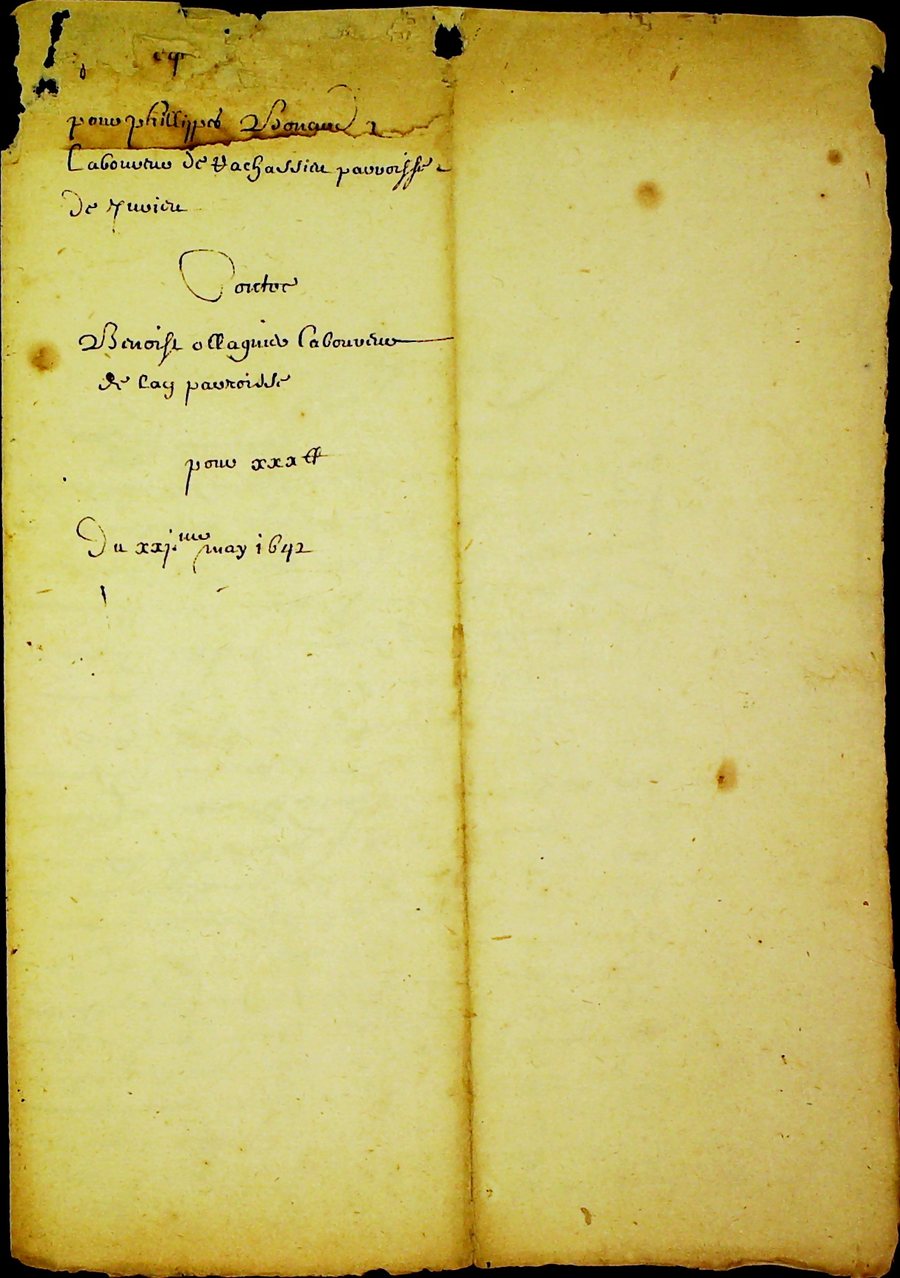 pour phillippes
Laboureur de Vachassieu parroisse
de Juvieu
Contre
Benoist ollagnier laboureur
de lad parroisse
pour xxx ₶
Du xxj.me may 1642